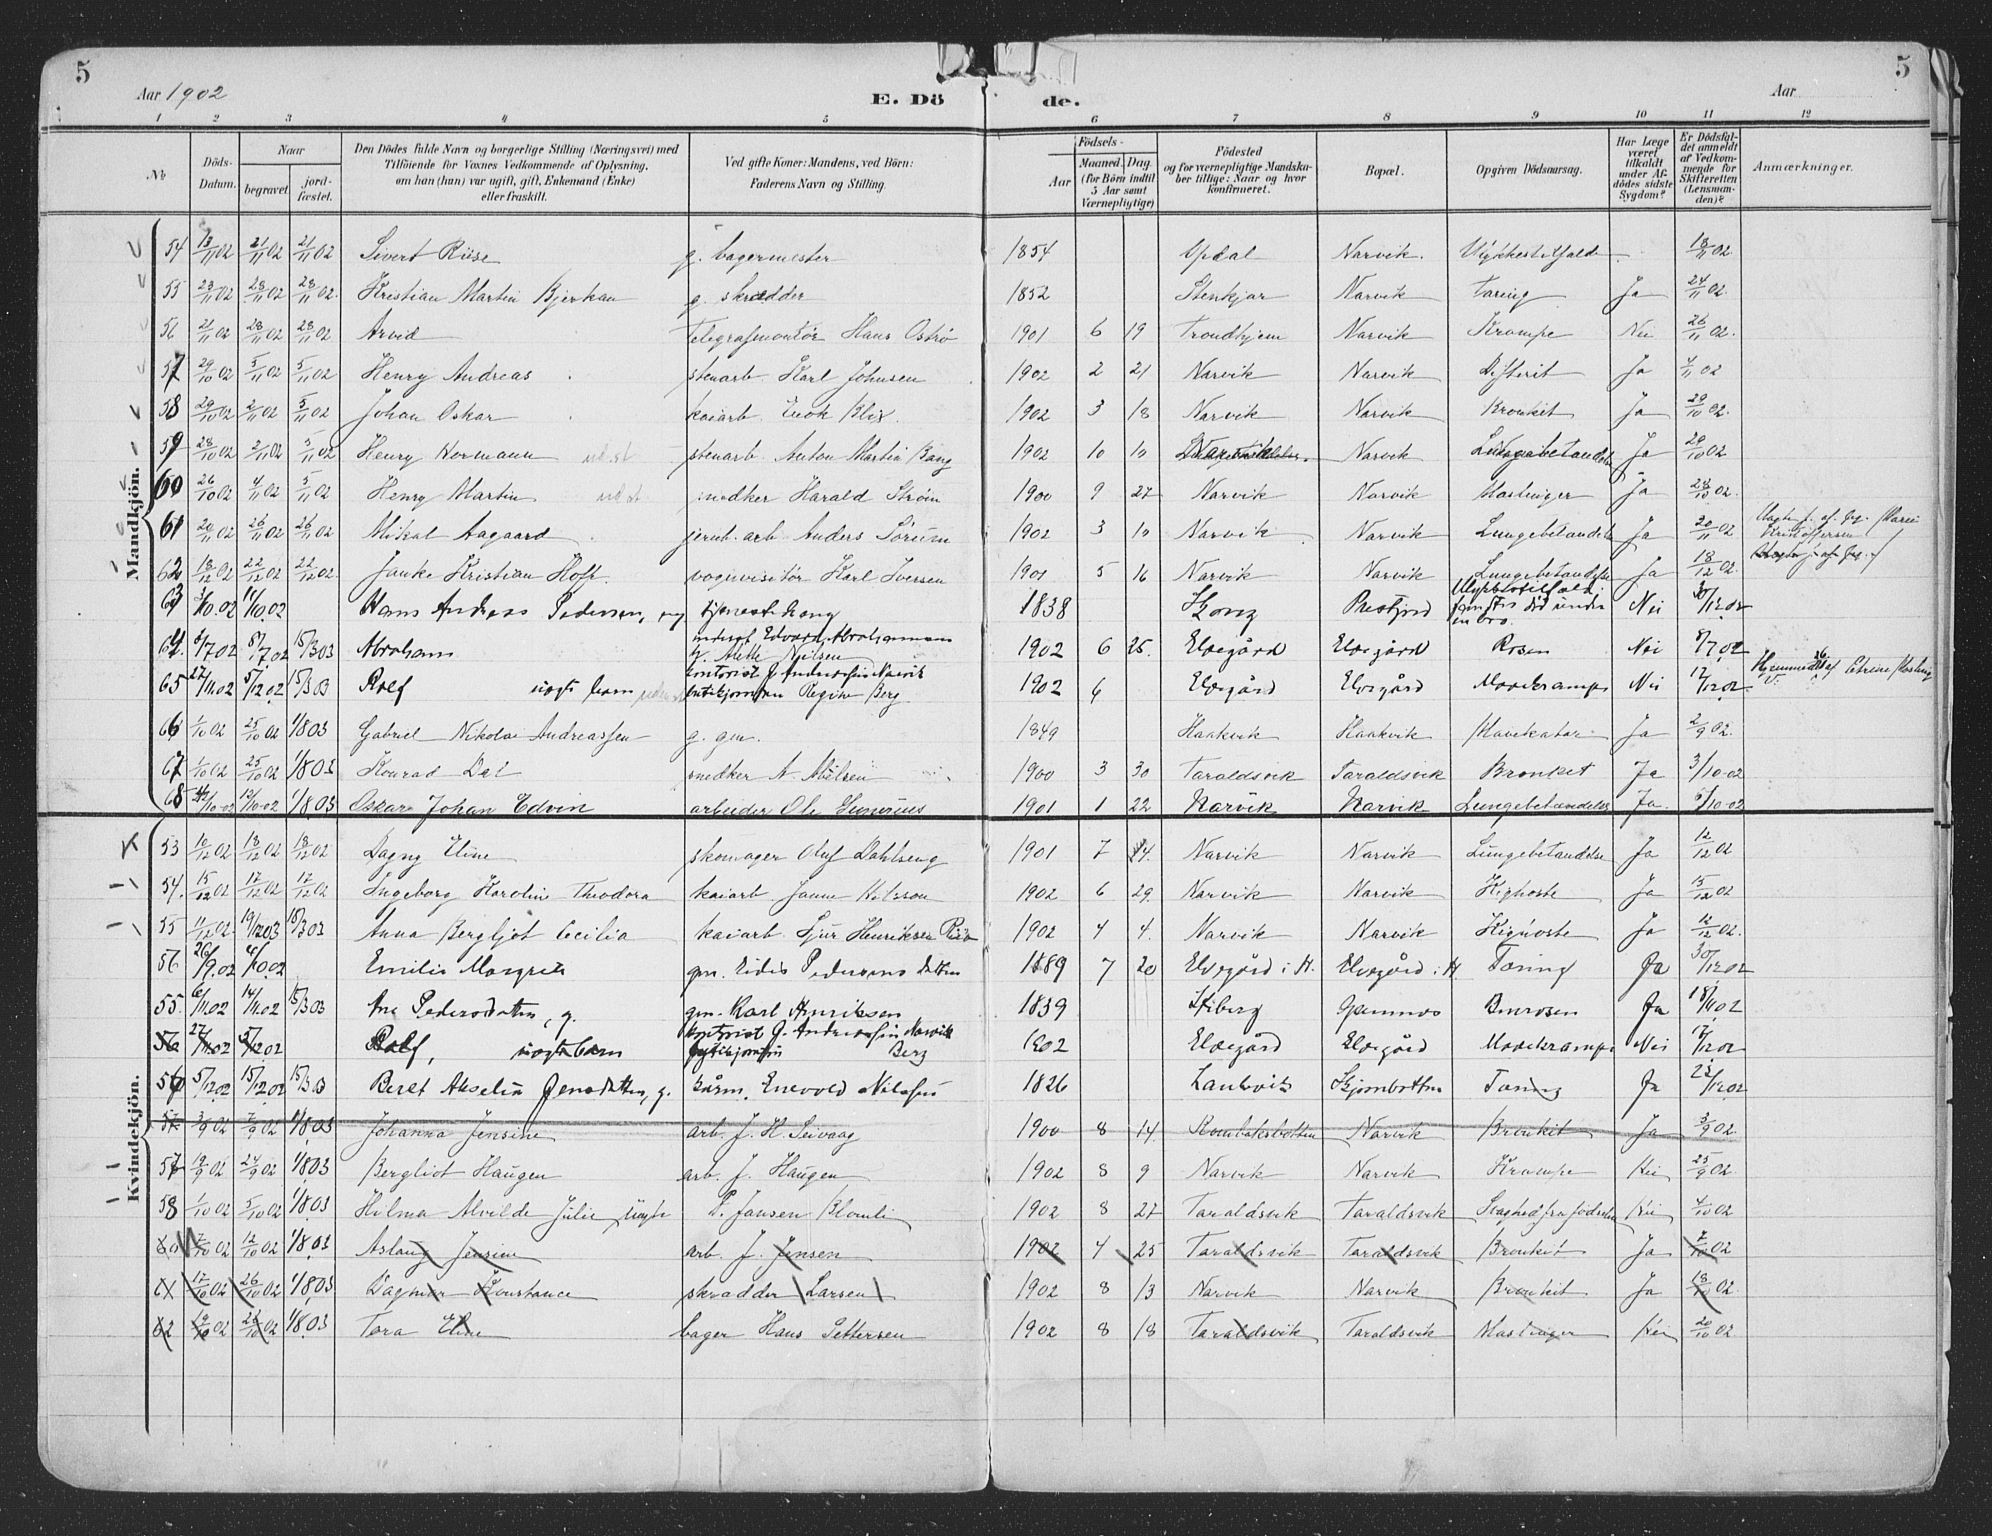 5
5
Aar 1902
E. Dö
de.
Aar
1 2 3 4 5 6 7 8 9 10 11 12
№
Döds-Datum.
Naar
begravet.
jord-fæstet.
Den Dödes fulde Navn og borgerlige Stilling (Næringsvei) med Tilföiende for Voxnes Vedkommende af Oplysning, om han (hun) var ugift, gift, Enkemand (Enke) eller fraskilt.
Ved gifte Koner: Mandens, ved Börn: Faderens Navn og Stilling.
Födsels-
Aar
Maaned. Dag.
(for Börn indtil 5 Aar samt Værnepligtige)
Födested og for værnepligtige Mandskaber tillige: Naar og hvor konfirmeret.
Bopæl.
Opgiven Dödsaarsag.
Har Læge været tilkaldt under Afdödes sidste Sygdom?
Er Dödsfaldet anmeldt af Vedkommende for Skifteretten (Lensmanden)?
Anmærkninger.
Mandkjön.
54 13/11 02 21/11 02 21/11 02 Sivert Riise g. bagermester 1854 Opdal Narvik. Ulykkestilfælde 18/11 02
55 23/11 02 28/11 02 28/11 02. Kristian Martin Bjerkan g. skrædder 1852 Stenkjær Narvik Tæring Ja 24/11 02.
56 21/11 02 28/11 02 28/11 02. Arvid Telegrafmontør Hans Ostrø 1901 6 19 Trondhjem Narvik Krampe Nei 26/11 02.
57 29/10 02 5/11 02 5/11 02 Henry Andreas stenarb. Karl Johnsen 1902 2 21 Narvik Narvik Difterit Ja 4/11 02
58 29/10 02 2/11 02 5/11 02 Johan Oskar kaiarb. Enok Blix 1902 3 18 Narvik Narvik Bronkit Ja 29/10 02.
59 28/10 02 2/11 02 5/11 02 Henry Normann stenarb. Anton Martin Bang 1902 10 10 Narvik Narvik Lungebetændelse Ja 29/10 02
60 26/10 02 4/11 02 5/11 02 Henry Martin snedker Harald Strøm 1900 9 27 Narvik Narvik Mæslinger Ja 28/10 02.
61 20/11 02 26/11 02 26/11 02 Mikal Aagaard jernb. arb Anders Sörum 1902 3 10 Narvik Narvik Lungebetændelse Ja 20/11 02 Kristoffersen
62 18/12 02 22/12 02 22/12 02. Janke Kristian Hoff. vognvisitør Karl Iversen 1901 5 16 Narvik Narvik Lungebetændelse Ja 18/12 02.
63 3/10.02 11/10.02 Hans Andreas Pedersen, 1838 Nei
64 6/7 02 8/7.02 15/3 03 Abraham indregt Edvard Abrahamsen Mette Nilsen 1902 6 25. Elvegård Elvegård Rosen Nei 8/7.02
65 27/11.02 5/12.02 15/3 03 Rolf uægte barn kontorist J. Andreassen Narvik Regine Berg. 1902 6 Elvegård Elvegård Mavekrampe Nei 17/12.02
66 1/10 02 25/10 02 1/8 03 Gabriel Nikolai Andreassen g. gm. 1849 Haakvik Haakvik Mavekatar Ja 2/9 02.
67 1/10 02 25/10 02 1/8 03 Konrad Dal snedker N. Nilsen 1900 3 30 Taraldsvik Taraldsvik Bronket Ja 3/10-02
68 4/10-02 12/10-02 1/8 03 Oskar Johan Edvin arbeider Ole 1901 1 22 Narvik Narvik Lungebetændelse Ja. 6/10-02
Kvindekjön.
53 10/12 02 18/12 02 18/12 02 Dagny Eline skomager Oluf Dahlseng 1901 7 14. Narvik Narvik Lungebetændelse Ja 12/12 02
54. 15/12 02 17/12 02 17/12 02 Ingeborg Karolin Theodora kaiarb. Nilsson 1902 6 29. Narvik Narvik Kighoste Ja 15/12 02
55 11/12 02. 19/12 03 15/3 03 Anna Bergljot Cecilia kaiarb. Sjur Henriksen 1902 4 4. Narvik Narvik Kighoste Ja 12/12 02.
56 26/9.02 4/10.02 Emilie Margrete gm. Edis Pedersens datter 1889 7 20 Elvegård i A. Elvegård i A Tæring Ja 30/12.02
55 6/11.02 14/11.02 15/3 03 Ane Pedersdatter, g. gm. Karl Henriksen 1839 Gammes Ja 18/11.02
56 27/11.02 5/12.02 Rolf, uægte barn kontorist J. Andreassen Narvik Berg 1902 Elvegård Elvegård Mavekrampe Nei 17/12.02
56 5/12.02 15/12.02 15/3 03 Beret Akselia Jensdatter, g. kårm. Enevold Nilssen 1826 Skjombotten Tæring Ja 23/12.02
57 3/9 02 7/9 02 1/8 03 Johanna Jensine arb. J. H. Seivaag 1900 8 14 Rombaksbotten Narvik Bronkit Ja 3/9 02.
57 19/9 02 24/9 02 1/8 03 Bergliot Haugen arb. J. Haugen 1902 8 9 Narvik Narvik Krampe Nei 25/9 02.
58 1/10 02 5/10 02 1/8 03 Hilma Alvilde Julie P. Jansen 1902 8 27 Taraldsvik Taraldsvik Svaghed fra fødselen Nei 4/10 02
7/10 02 12/10 02 1/8 03 Aslaug Jensine arb. J. Jensen 1902 4 25 Taraldsvik Taraldsvik Bronkit Ja 7/10 02
17/10 02 26/10 02 1/8 03 Dagmar Konstance skrædder Larsen 1902 8 13 Narvik Narvik Bronkit Ja 18/10 02
62 19/10 02 26/10 02 1/8 03 Tora Eline bager Hans Pettersen 1902 8 18 Taraldsvik Taraldsvik Mæslinger Nei 20/10 02